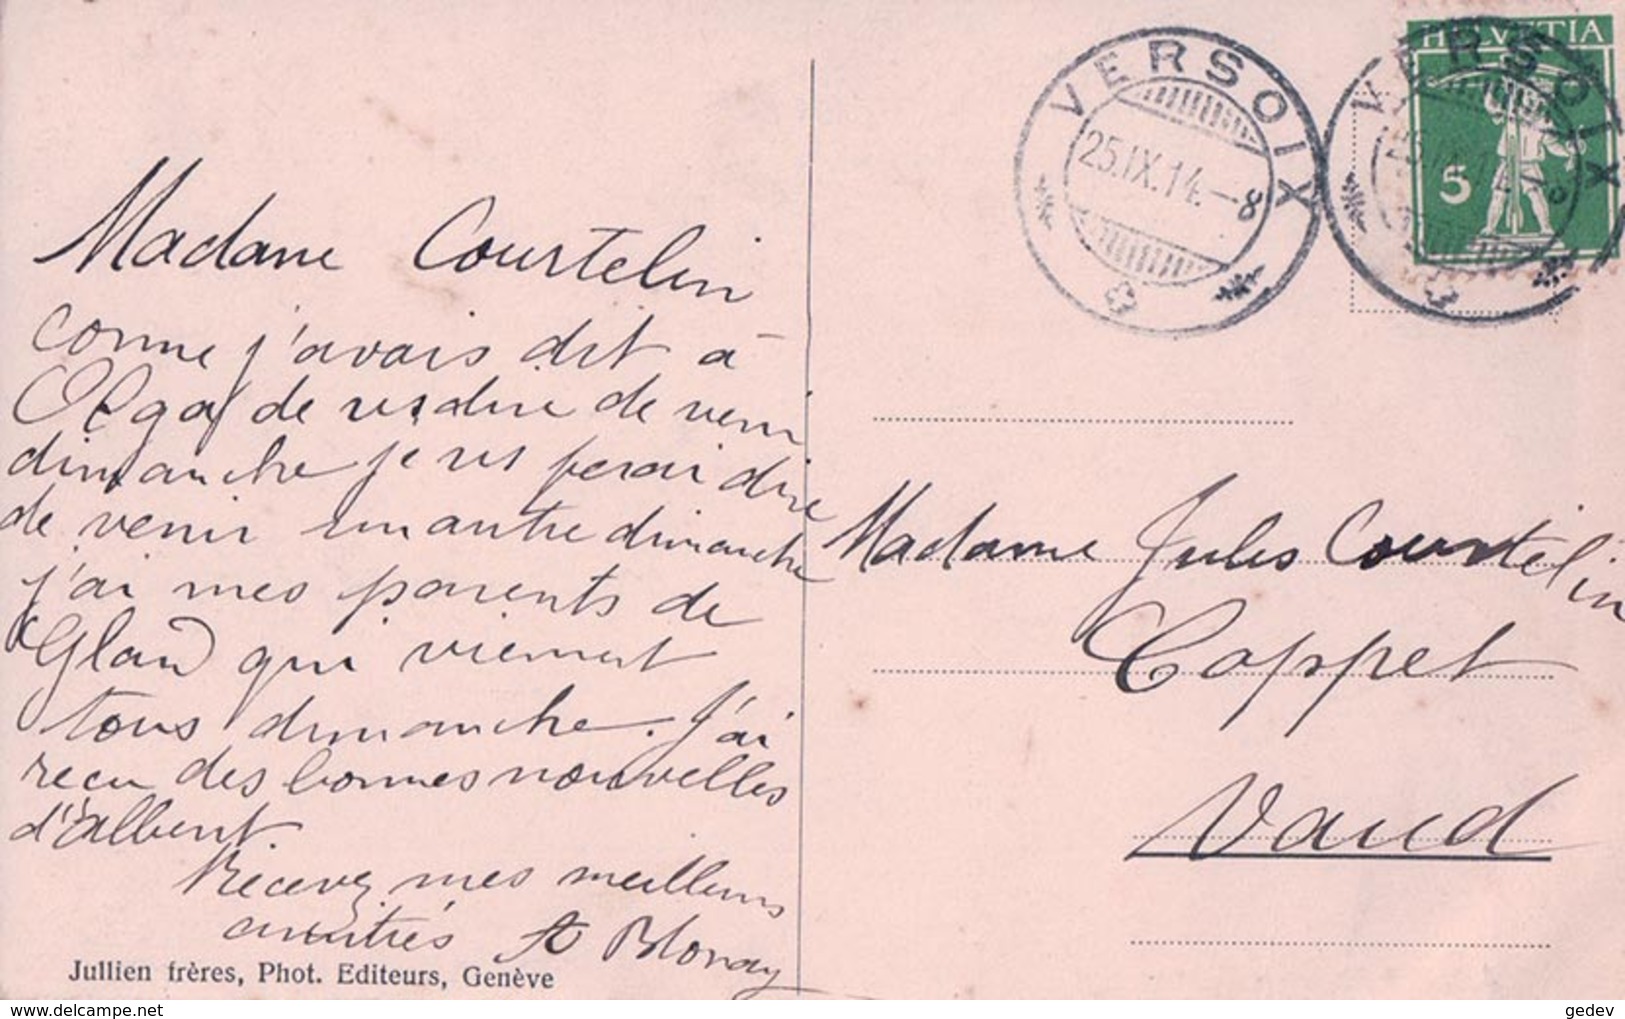 Madame Courtelin
comme j'avais dit à
Olga de vs dire de venir
dimanche je vs ferai dire
de venir un autre dimanche
j'ai mes parents de
Gland qui viennent
tous dimanche. J'ai
reçu des bonnes nouvelles
d'Albert.
Recevez mes meilleurs
amitiés A Blonay
Jullien frères, Phot. Editeurs, Genève
VERSOIX
25.IX.14.-8
VERSOIX
HELVETIA
5
Madame Jules Courtelin
Coppet
Vaud
delcampe.net
gedev